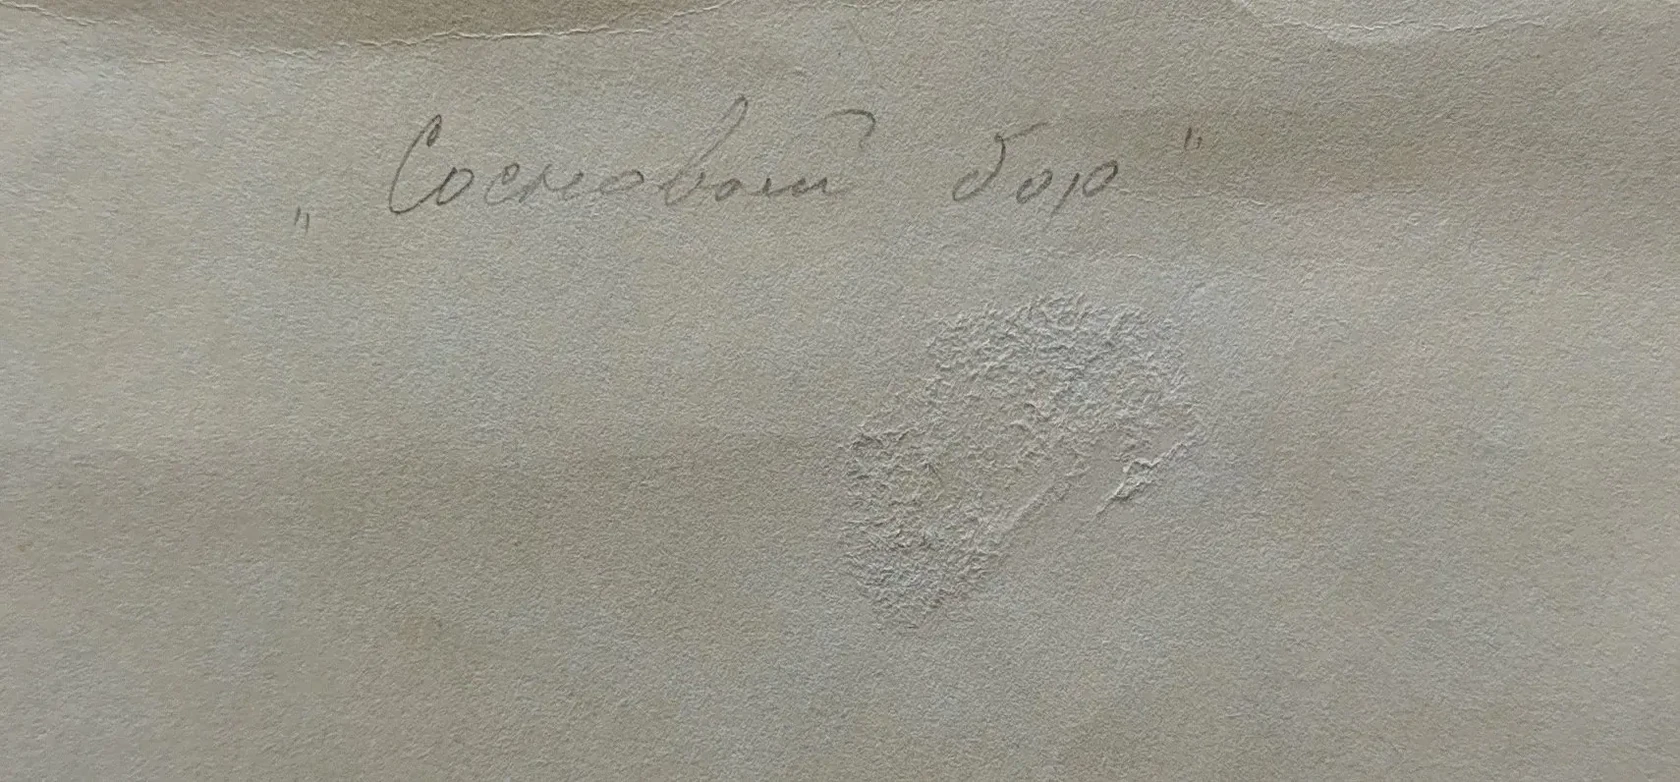 „Сосновый бор"